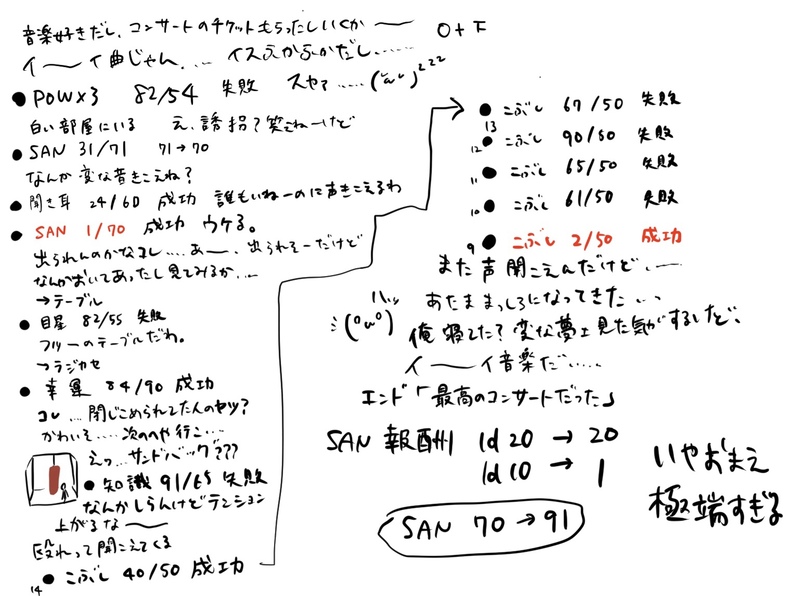 音楽好きだし、コンサートのチケットもらったしいくか〜
イ〜イ曲じゃん… イスふかふかだし……
POW×3 82/54 失敗 スヤァ……(˘ω˘)zzz
白い部屋にいる え、誘拐?笑えねーけど
SAN 31/71 71→70
なんか変な音きこえね?
聞き耳 24/60 成功 誰もいねーのに声きこえるわ
SAN 1/70 成功 ウケる。
出られんのかなコレ……あー、出られそーだけど
なんかおいてあったし見てみるか…
→テーブル
目星 82/55 失敗
フツーのテーブルだわ。
→ラジカセ
幸運 84/90 成功
コレ…閉じこめられてたんのヤツ?
かわいそ……次のへや行こ…
えっ…サンドバッグ???
知識 91/65 失敗
なんかしらんけどテンション
上がるな〜
殴れって聞こえてくる
14 こぶし 40/50 成功
こぶし 67/50 失敗
13
12 こぶし 90/50 失敗
11 こぶし 65/50 失敗
10 こぶし 61/50 失敗
9 こぶし 2/50 成功
また声聞こえんだけど…
あたままっしろになってきた…
ハッ
(°ω°) 俺寝てた?変な夢を見た気がするけど、
イ〜イ音楽だ……
エンド「最高のコンサートだった」
SAN 報酬 1d20 → 20
1d10 → 1
SAN 70→91
いやおまえ
極端すぎる